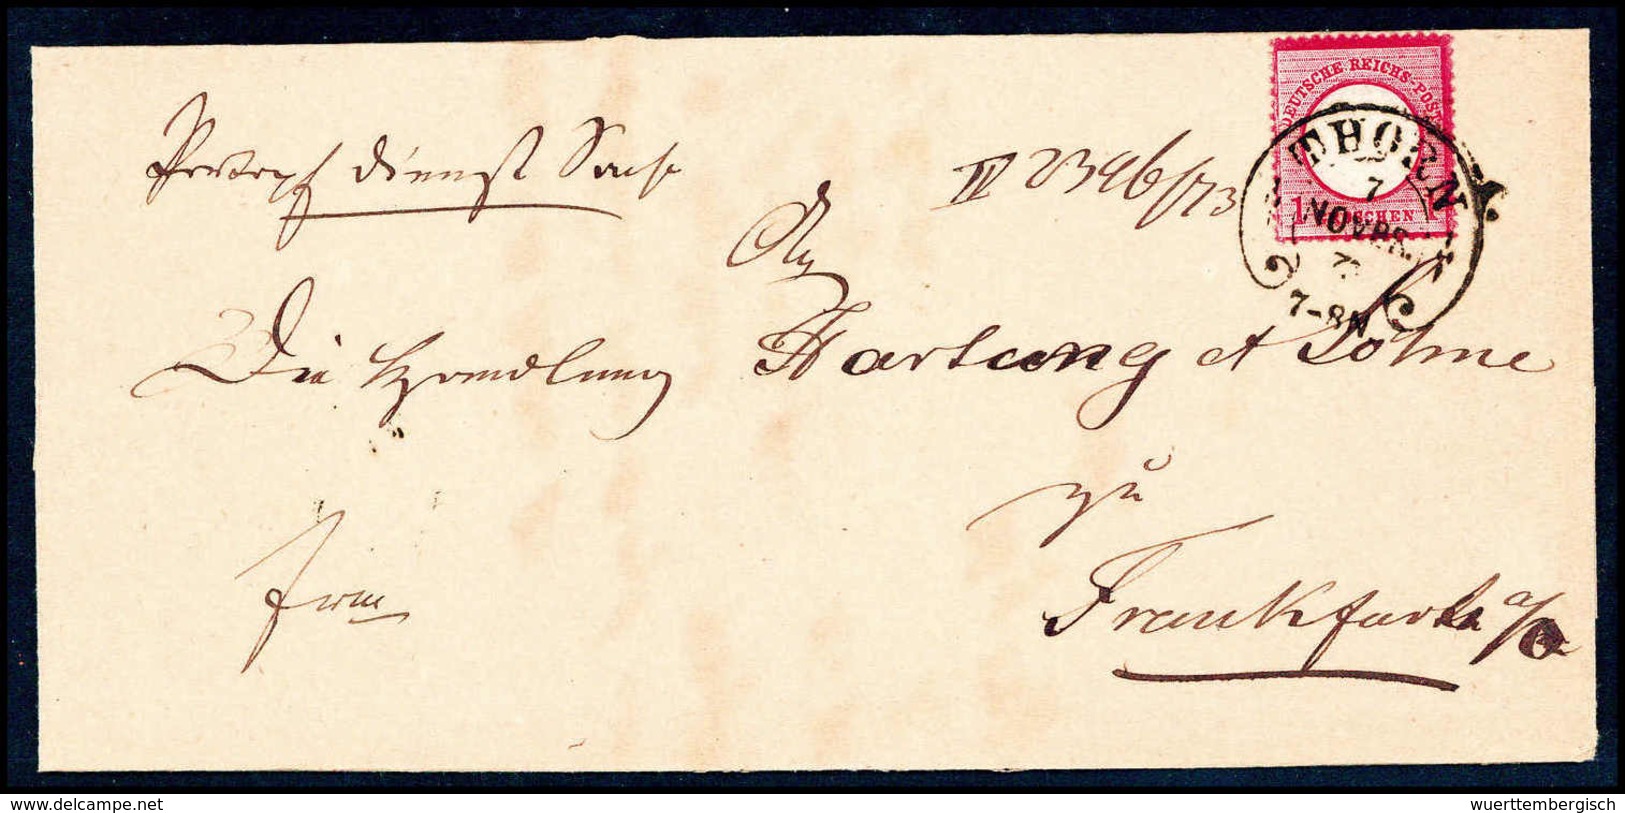 Portopf dienst Sache
IV 2396/73
DEUTSCHE REICHS-POST
1 GROSCHEN 1
THORN
7
NOVBR.
7-8N
An
Die Handlung Hartung et Söhne
zu
Frankfurth a/O
frei
delcampe.net
wuerttembergisch